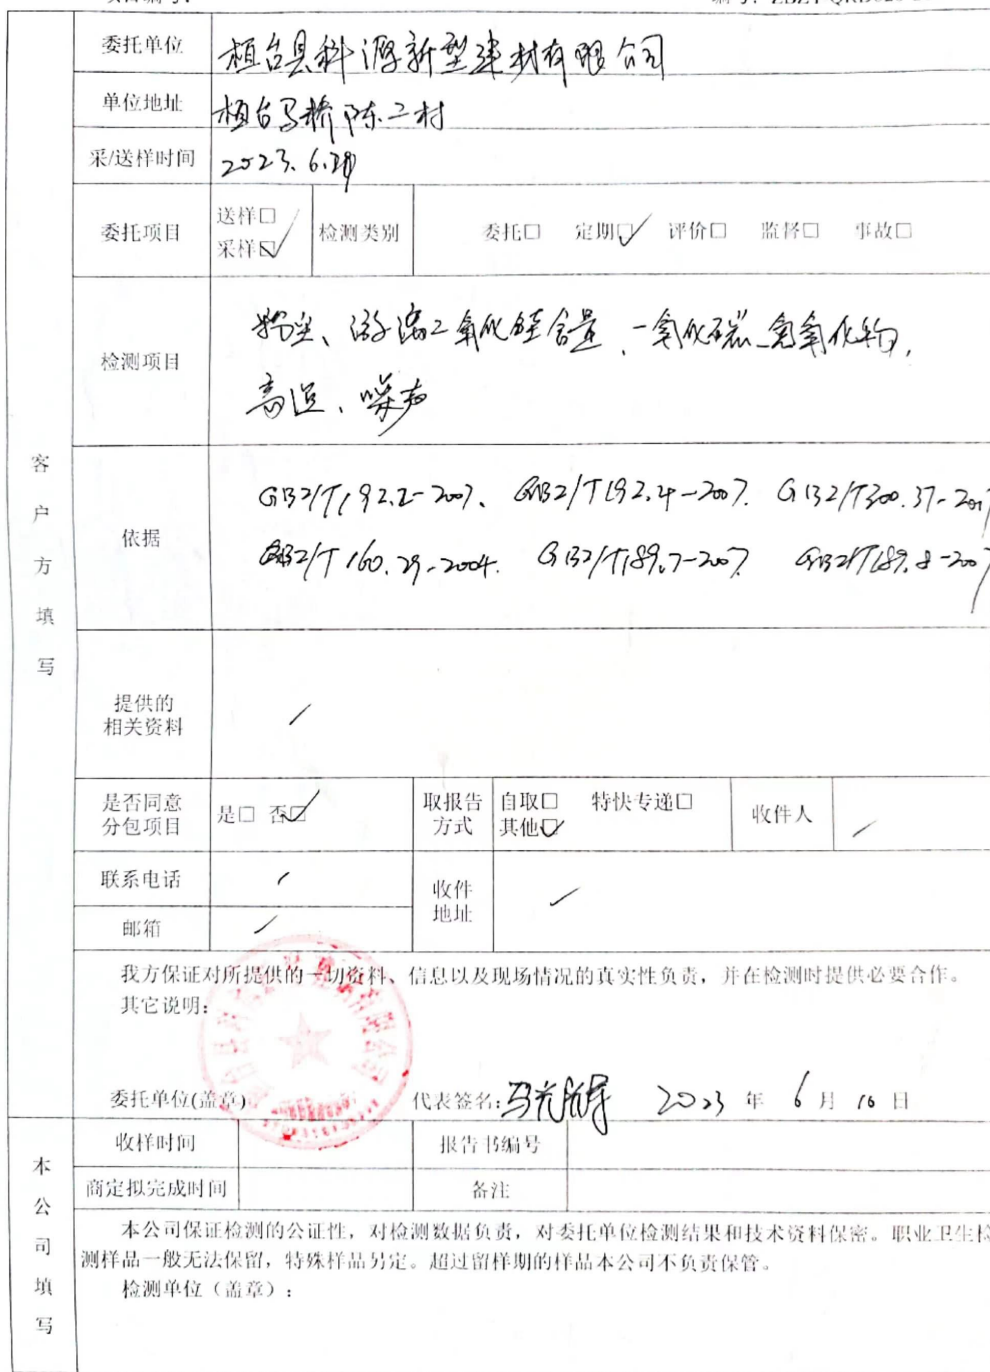 委托单位 桓台县科源新型建材有限公司
单位地址 桓台马桥陈三村
采/送样时间 2023.6.20
委托项目 送样□ 采样☑ 检测类别 委托□ 定期☑ 评价□ 监督□ 事故□
检测项目 粉尘、游离二氧化硅含量、一氧化碳、氮氧化物,
高温、噪声
依据 GBZ/T192.2-2007、 GBZ/T192.4-2007. GBZ/T300.37-2017
GBZ/T160.29-2004. GBZ/T189.7-2007. GBZ/T189.8-2007
客户方填写
提供的
相关资料 /
是否同意
分包项目 是□ 否☑ 取报告
方式 自取□ 特快专递□
其他☑ 收件人 /
联系电话 / 收件
地址 /
邮箱 /
我方保证对所提供的一切资料、信息以及现场情况的真实性负责,并在检测时提供必要合作。
其它说明:
委托单位(盖章) 代表签名: 2023 年 6 月 16 日
收样时间 报告书编号
商定拟完成时间 备注
本公司填写
本公司保证检测的公证性,对检测数据负责,对委托单位检测结果和技术资料保密。职业卫生检
测样品一般无法保留,特殊样品另定。超过留样期的样品本公司不负责保管。
检测单位(盖章):